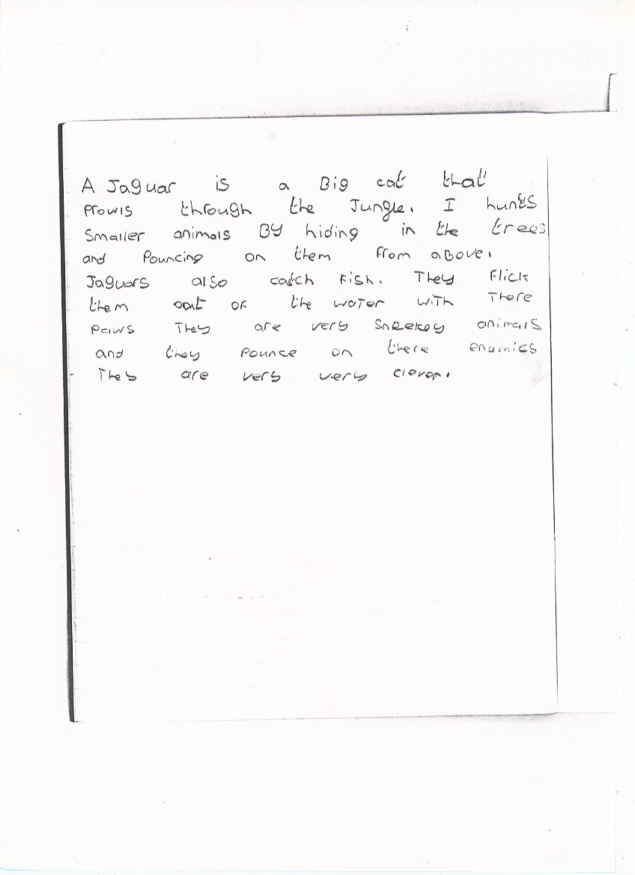 A Jaguar is a Big cat that
Prowls through the Jungle. I hunts
Smaller animals BY hiding in the trees
and Pouncing on them from above.
Jaguars also catch Fish. They Flick
them oat of the water with There
Paws They are very Sneekey animals
and they Pounce on there enamies
They are very very clever.